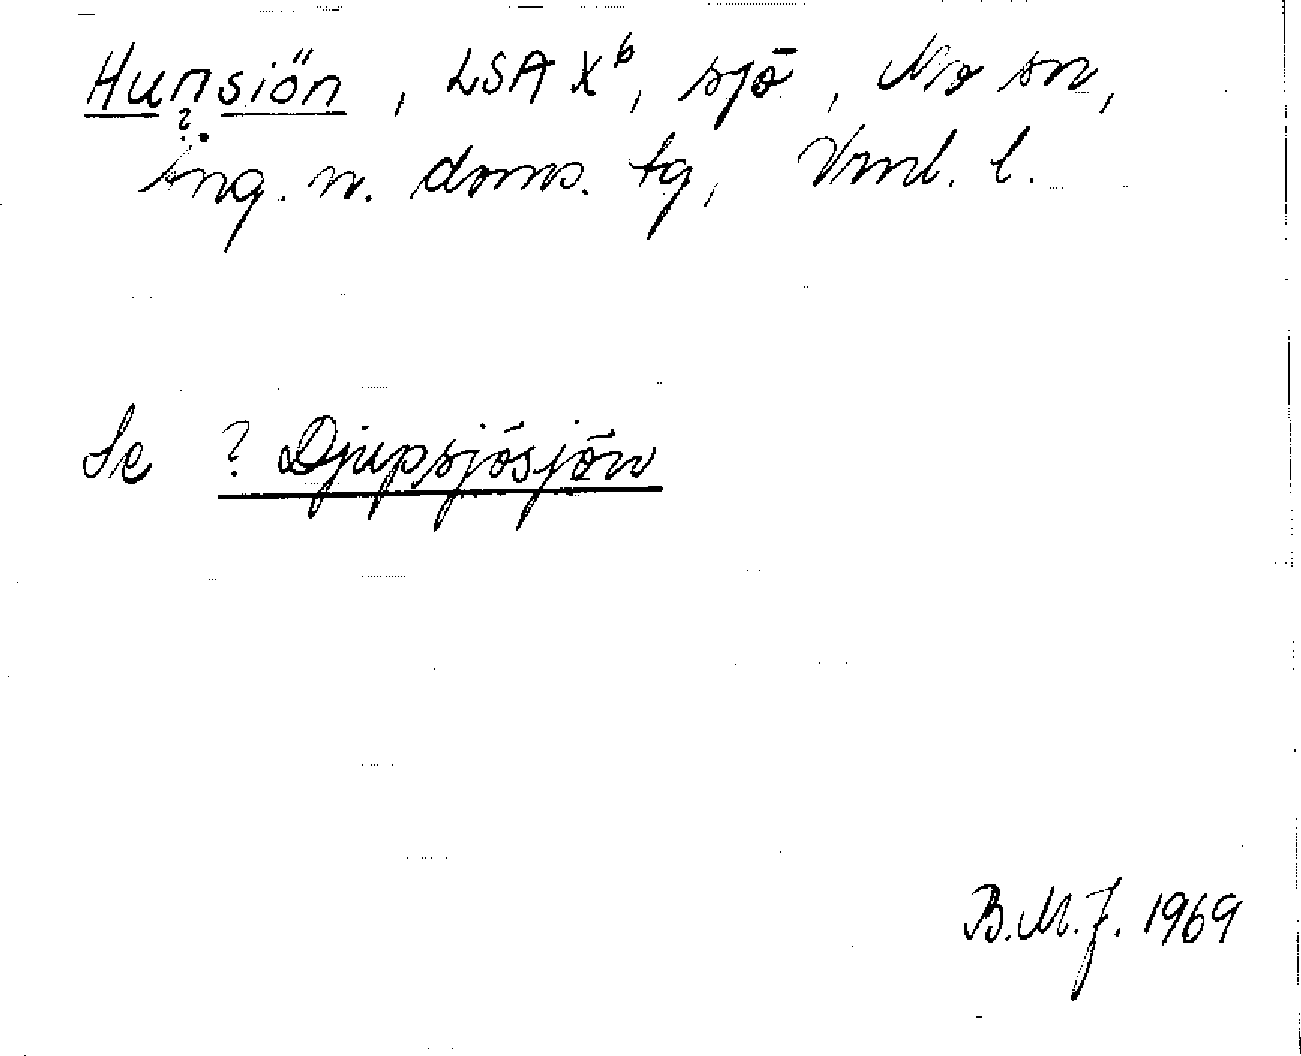 Hunsiön, LSA X⁶, sjö, No sn,
?
Ång. n. doms. tg, Vml. l.
Se ? Djupsjösjön
B.M.J. 1969